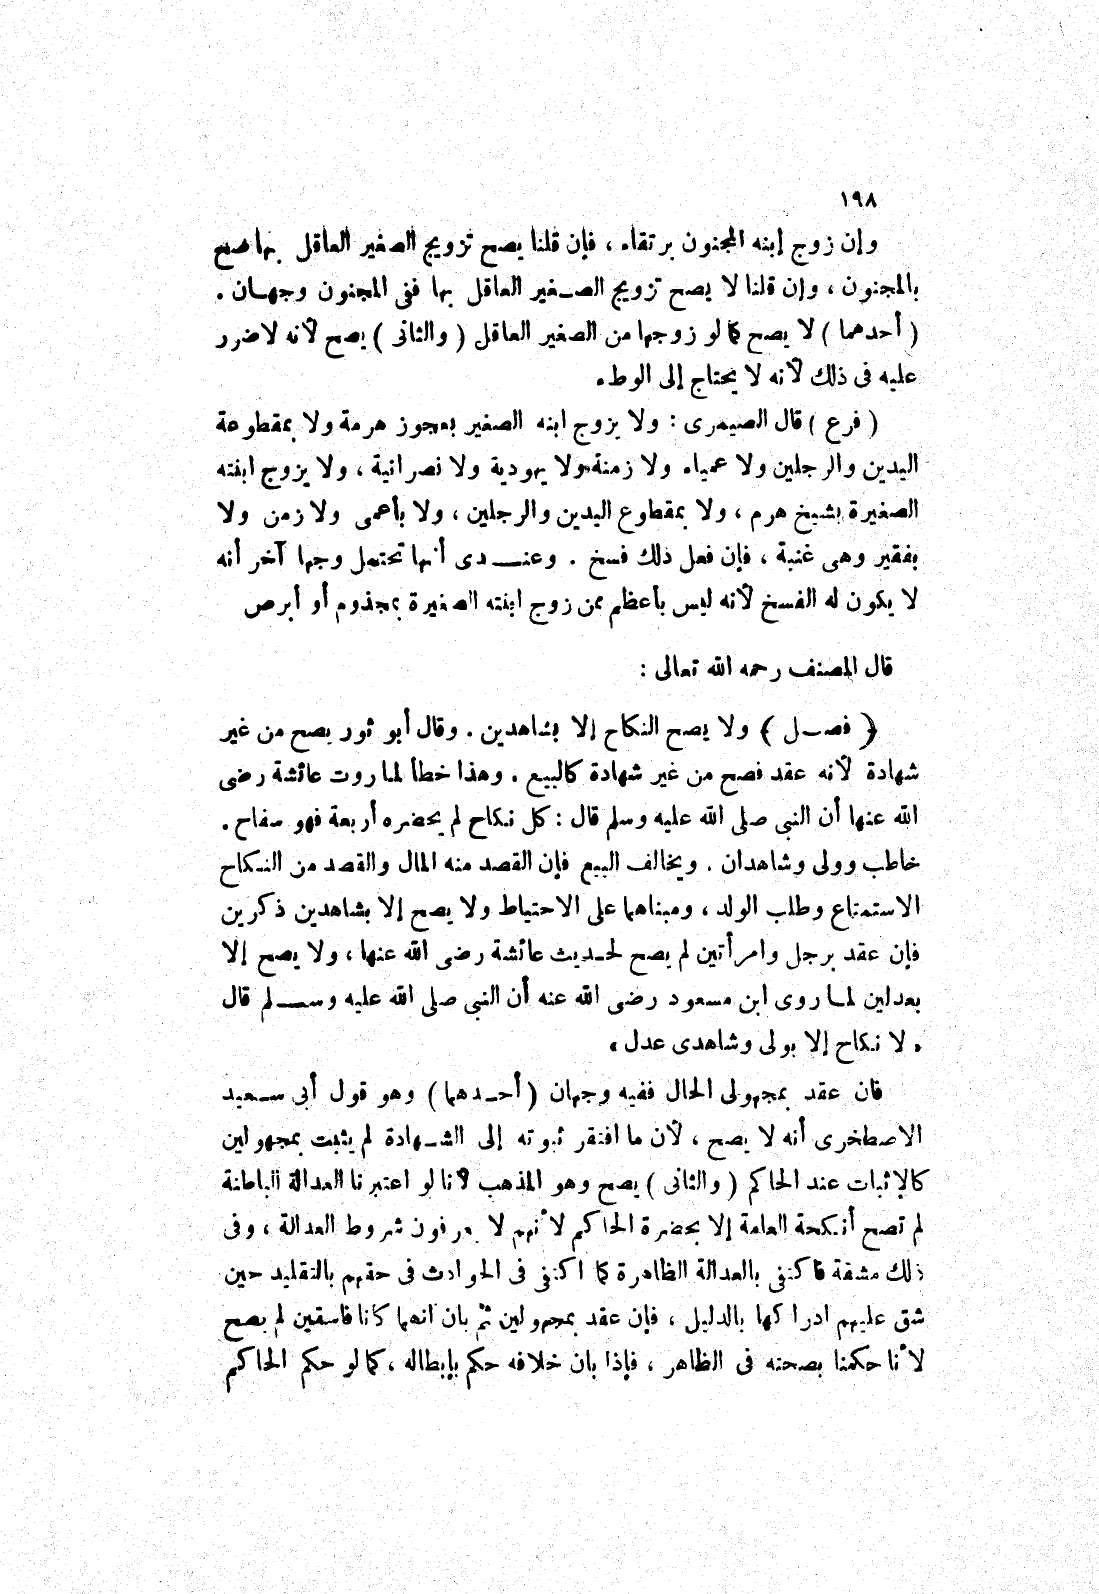 ١٩٨
وإن زوج إبنه المجنون برتقاء ، فإن قلنا يصح تزويج الصغير العاقل بها صح
بالمجنون ، وإن قلنا لا يصح تزويج الصغير العاقل بها ففى المجنون وجهان .
( أحدهما ) لا يصح كما لو زوجها من الصغير العاقل ( والثانى ) يصح لأنه لا ضرر
عليه فى ذلك لأنه لا يحتاج إلى الوطء
( فرع ) قال الصيمرى : ولا يزوج ابنه الصغير بعجوز هرمة ولا بمقطوعة
اليدين والرجلين ولا عمياء ولا زمنة ولا يهودية ولا نصرانية ، ولا يزوج ابنته
الصغيرة بشيخ هرم ، ولا بمقطوع اليدين والرجلين ، ولا بأعمى ولا زمن ولا
بفقير وهى غنية ، فإن فعل ذلك فسخ . وعندى أنها تحتمل وجها آخر أنه
لا يكون له الفسخ لأنه ليس بأعظم ممن زوج ابنته الصغيرة بمجذوم أو أبرص
قال المصنف رحمه الله تعالى :
﴿ فصل ﴾ ولا يصح النكاح إلا بشاهدين . وقال أبو ثور يصح من غير
شهادة لأنه عقد فصح من غير شهادة كالبيع . وهذا خطأ لما روت عائشة رضى
الله عنها أن النبى صلى الله عليه وسلم قال : كل نكاح لم يحضره أربعة فهو سفاح .
خاطب وولى وشاهدان . ويخالف البيع فإن القصد منه المال والقصد من النكاح
الاستمتاع وطلب الولد ، ومبناهما على الاحتياط ولا يصح إلا بشاهدين ذكرين
فإن عقد برجل وامرأتين لم يصح لحديث عائشة رضى الله عنها ، ولا يصح إلا
بعدلين لما روى ابن مسعود رضى الله عنه أن النبى صلى الله عليه وسلم قال
« لا نكاح إلا بولى وشاهدى عدل »
فان عقد بمجهولى الحال ففيه وجهان ( أحدهما ) وهو قول أبى سعيد
الاصطخرى أنه لا يصح ، لأن ما افتقر ثبوته إلى الشهادة لم يثبت بمجهولين
كالإثبات عند الحاكم ( والثانى ) يصح وهو المذهب لأنا لو اعتبرنا العدالة الباطنة
لم تصح أنكحة العامة إلا بحضرة الحاكم لأنهم لا يعرفون شروط العدالة ، وفى
ذلك مشقة فاكتفى بالعدالة الظاهرة كما اكتفى فى الحوادث فى حقهم بالتقليد حين
شق عليهم ادراكها بالدليل ، فإن عقد بمجهولين ثم بان انهما كانا فاسقين لم يصح
لأنا حكمنا بصحته فى الظاهر ، فإذا بان خلافه حكم بإبطاله ، كما لو حكم الحاكم